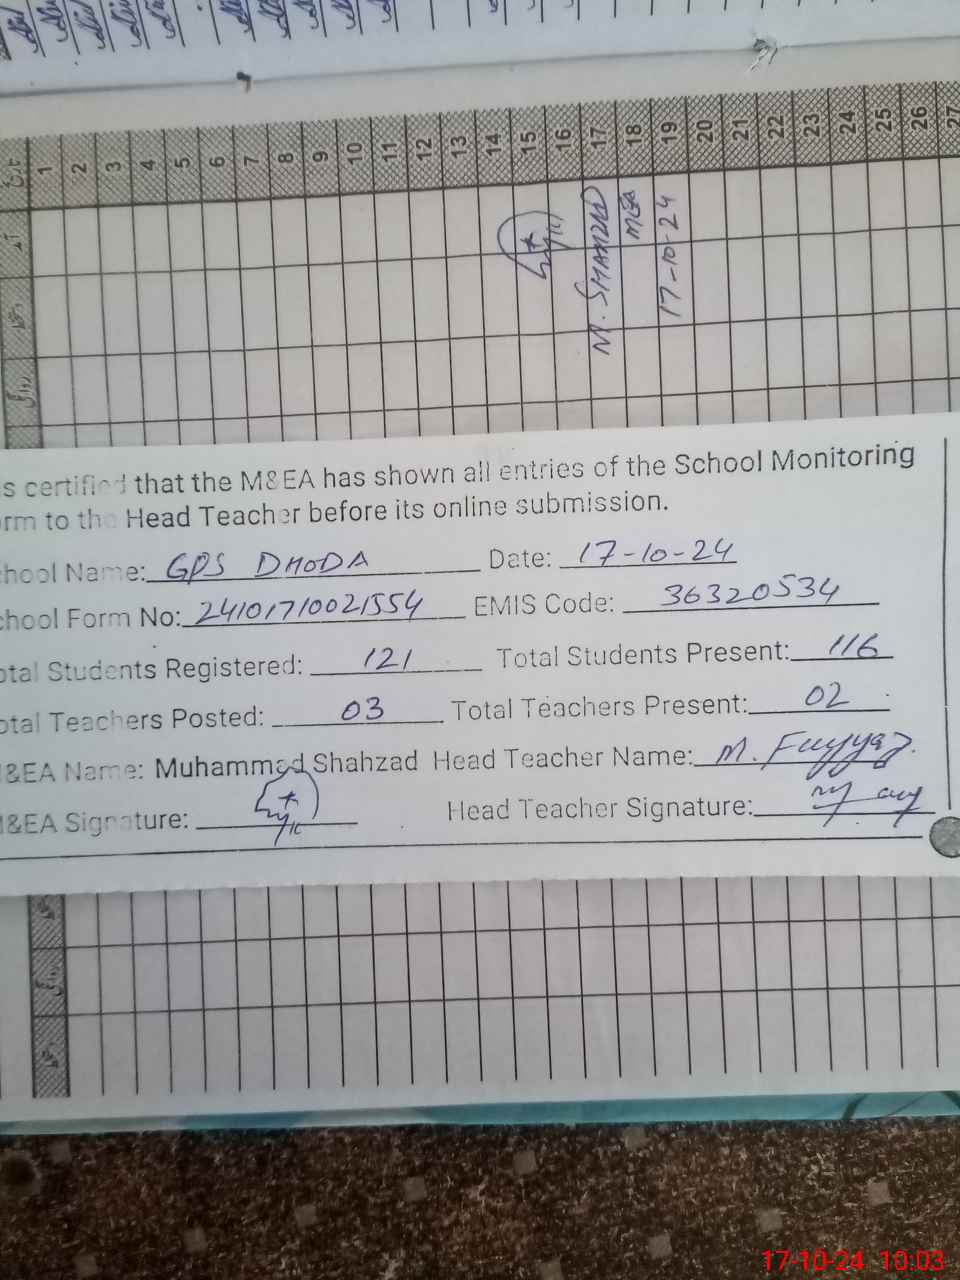 1 2 3 4 5 6 7 8 9 10 11 12 13 14 15 16 17 18 19 20 21 22 23 24 25 26 27
M. SHAHZAD
MEA
17-10-24
s certified that the M&EA has shown all entries of the School Monitoring
rm to the Head Teacher before its online submission.
hool Name: GPS DHODA Date: 17-10-24
chool Form No: 24101710021554 EMIS Code: 36320534
otal Students Registered: 121 Total Students Present: 116
otal Teachers Posted: 03 Total Teachers Present: 02
&EA Name: Muhammad Shahzad Head Teacher Name: M. Fayyaz.
&EA Signature: Head Teacher Signature:
17-10-24 10:03